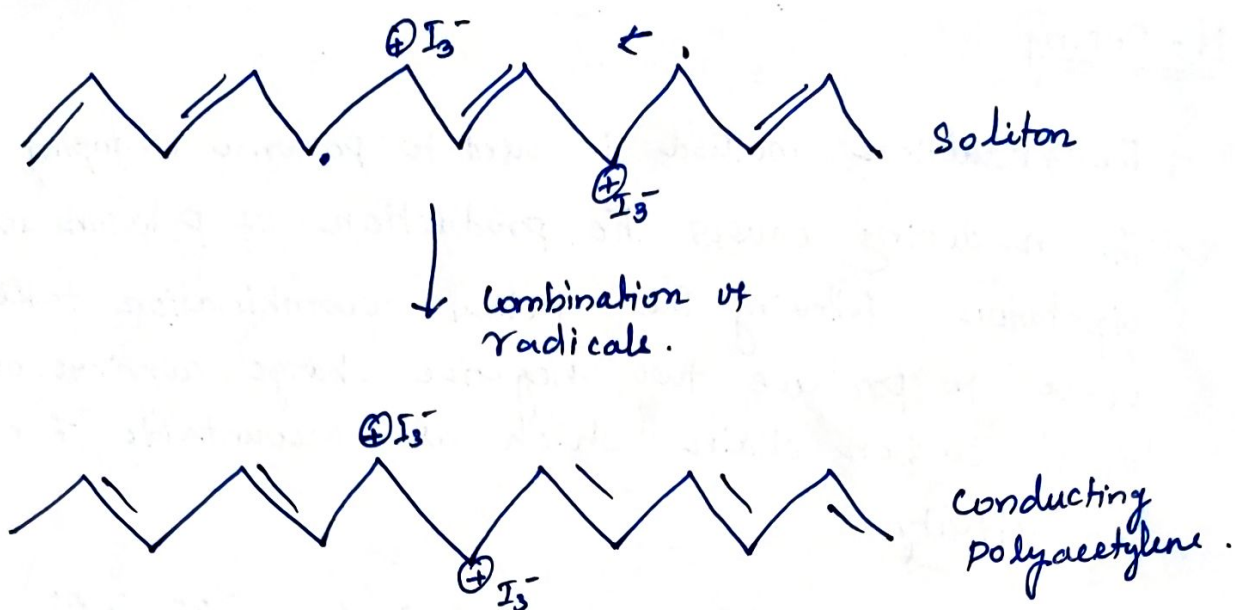 ⊕ I₃⁻
←
Soliton
⊕ I₃⁻
combination of
radicals.
⊕ I₃⁻
conducting
polyacetylene.
⊕ I₃⁻